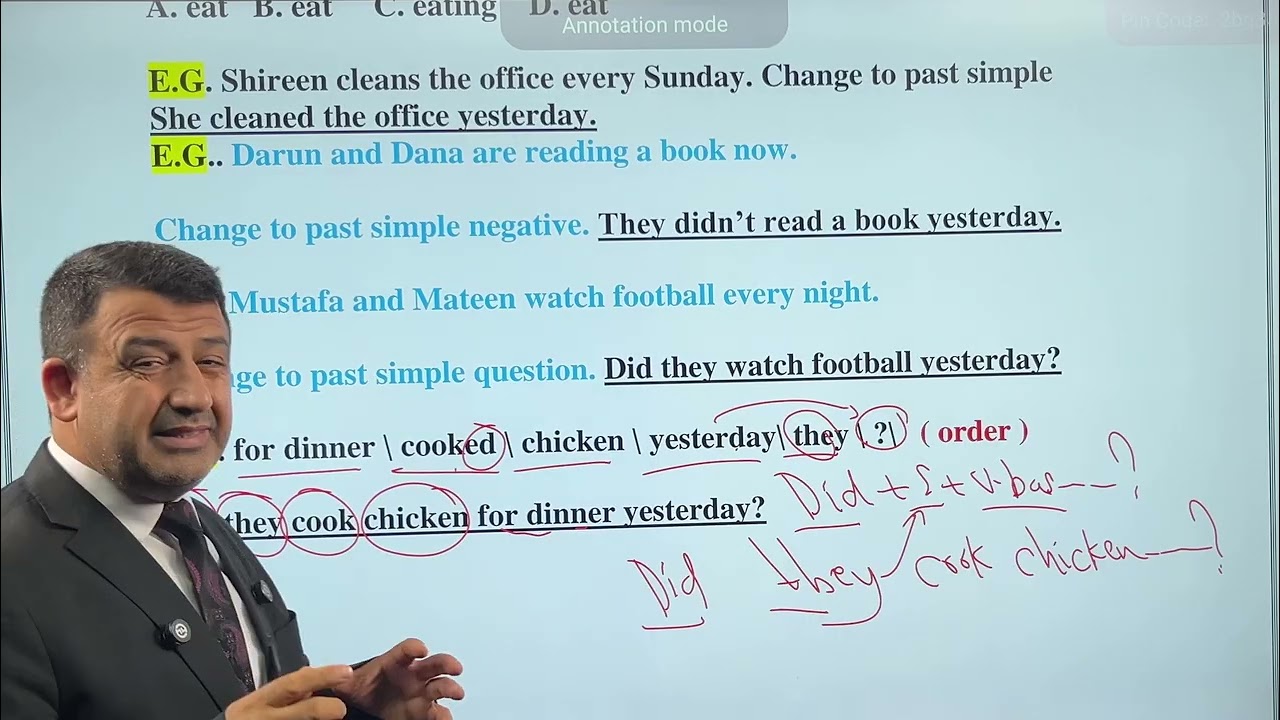 A. eat B. eat C. eating D. eat
Annotation mode
Pin Code:
E.G. Shireen cleans the office every Sunday. Change to past simple
She cleaned the office yesterday.
E.G.. Darun and Dana are reading a book now.
Change to past simple negative. They didn’t read a book yesterday.
Mustafa and Mateen watch football every night.
ge to past simple question. Did they watch football yesterday?
. for dinner \ cooked \ chicken \ yesterday\ they \ ?\ ( order )
Did + S + v.bas -- ?
they cook chicken for dinner yesterday?
Did they cook chicken -- ?